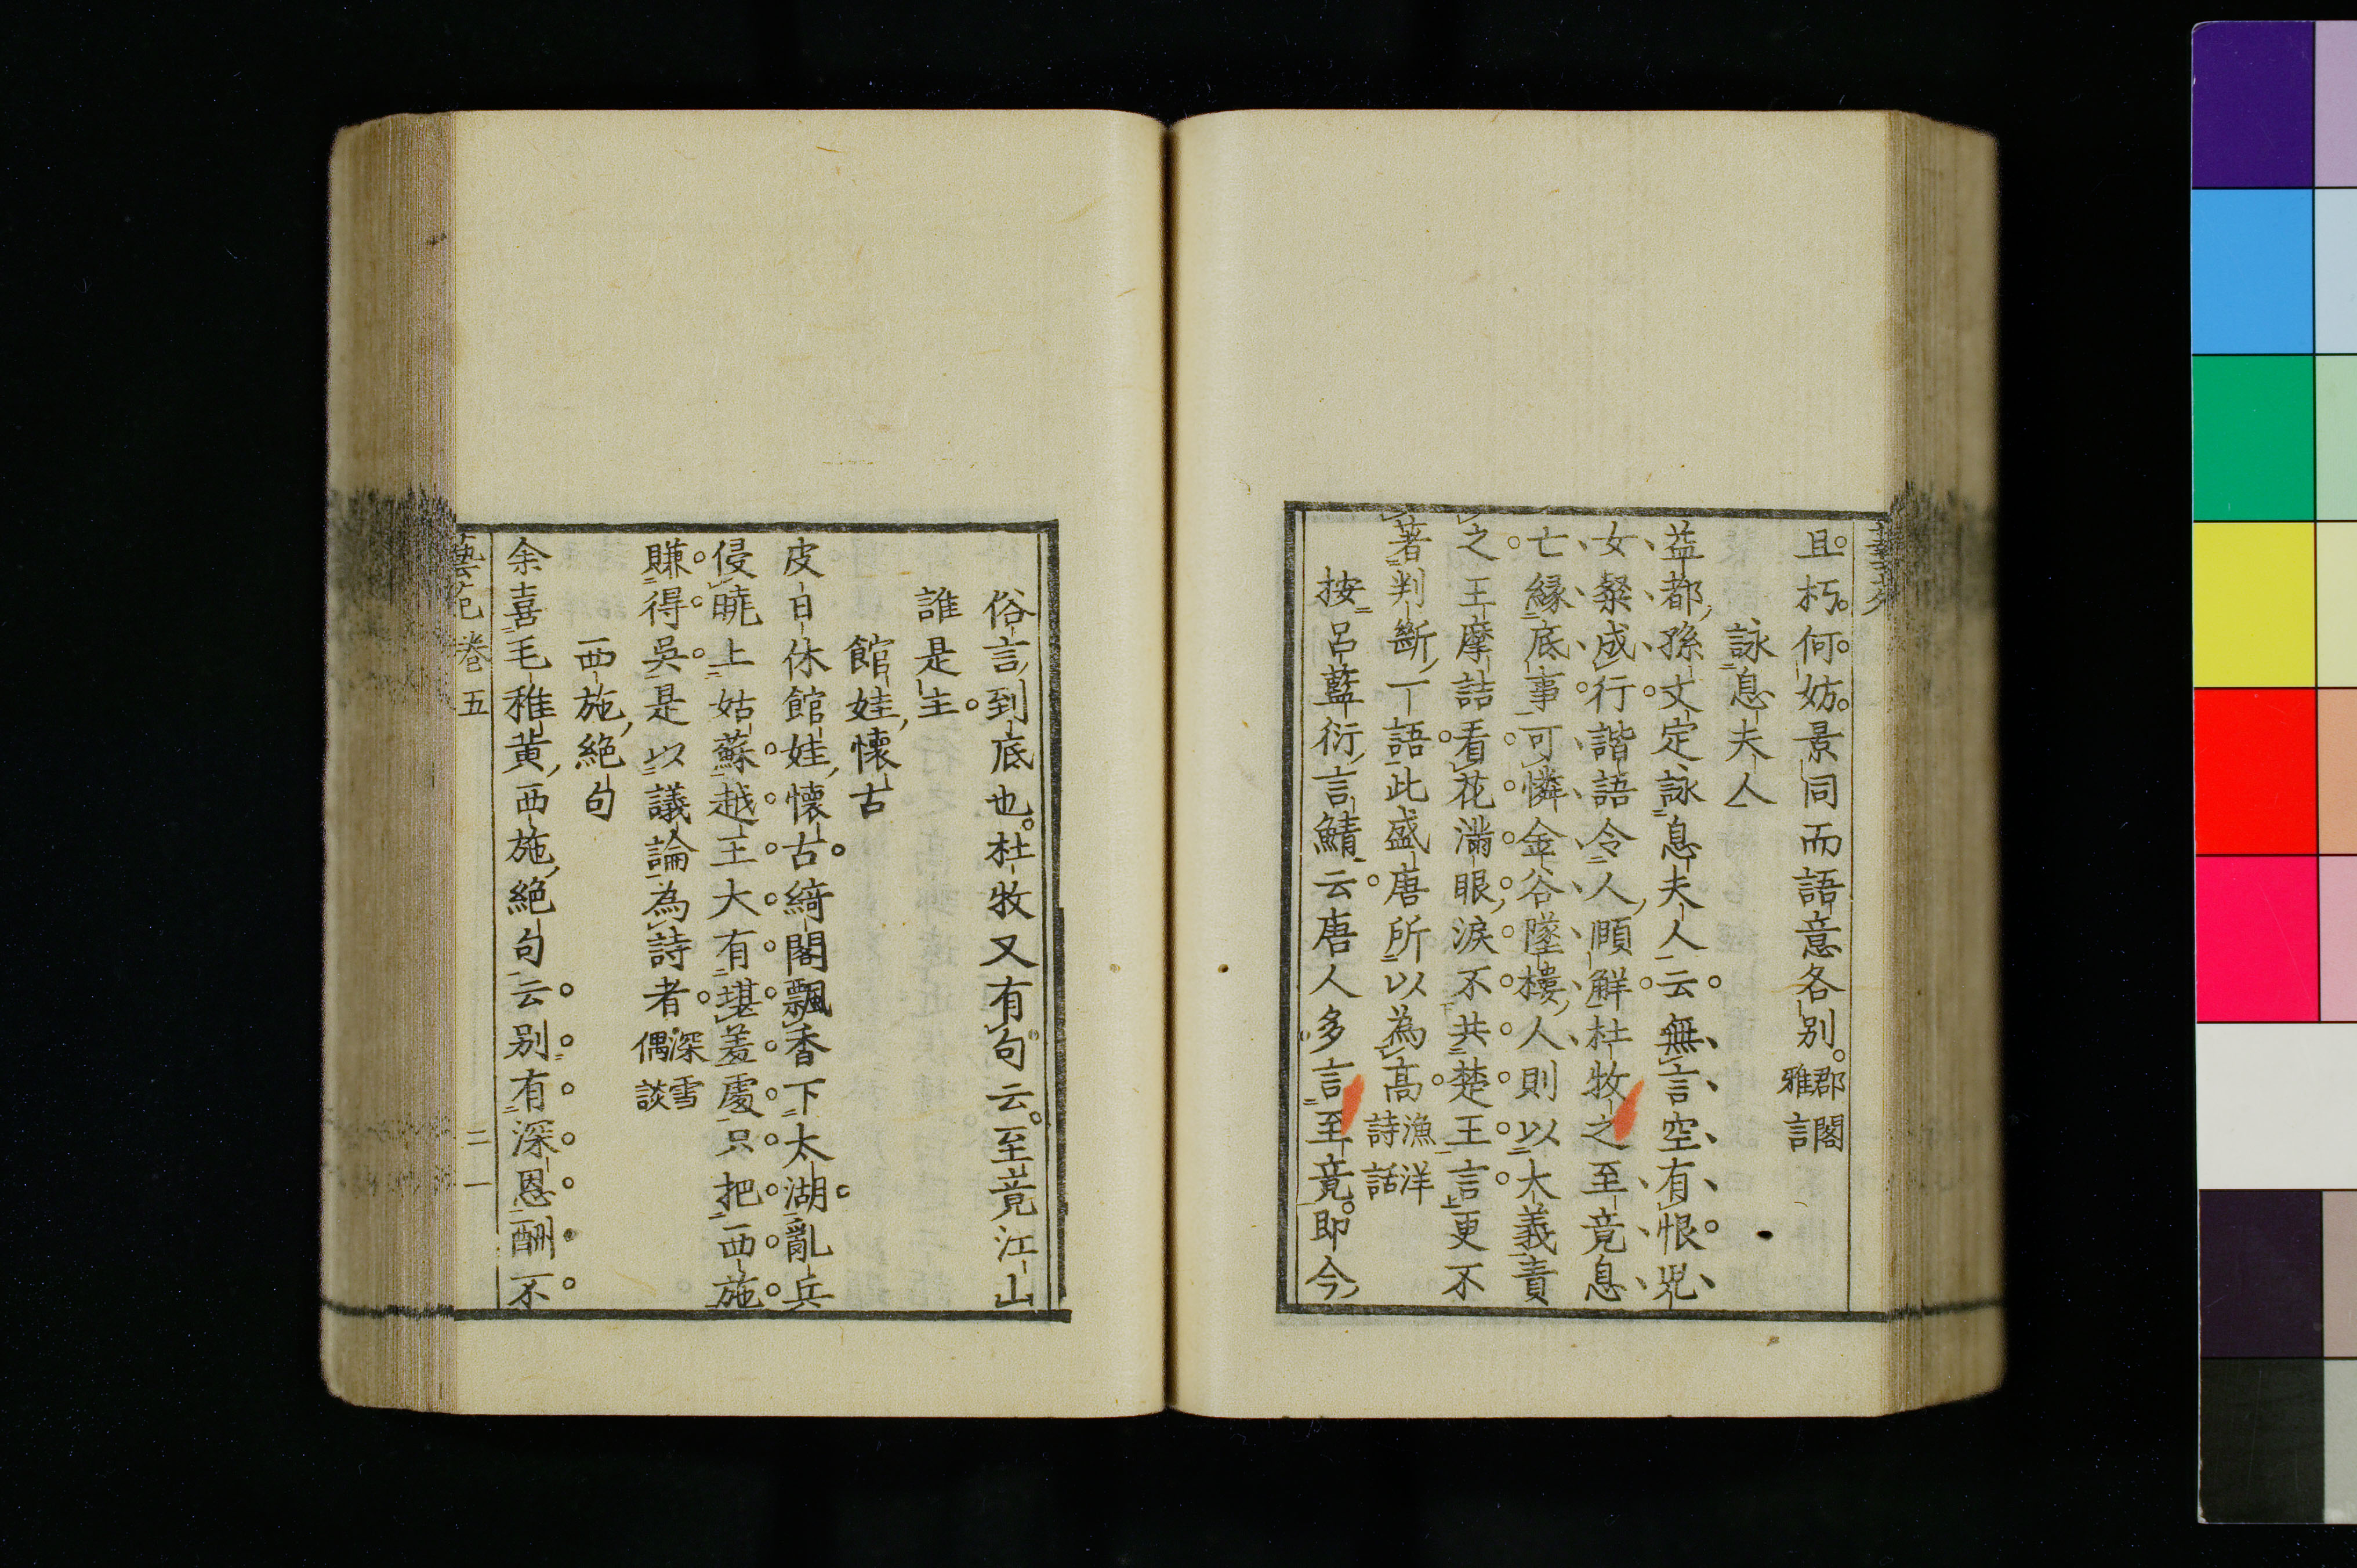 且朽何妨景同而語意各別郡閣雅言
詠息夫人
益都孫文定詠息夫人云無言空有恨兒
女粲成行諧語令人頤解杜牧之至竟息
亡縁底事可憐金谷墜樓人則以大義責
之王摩詰看花滿眼淚不共楚王言更不
著判斷一語此盛唐所以為高漁洋詩話
按呂藍衍言鯖云唐人多言至竟即今
俗言到底也杜牧又有句云至竟江山
誰是主
館娃懐古
皮日休館娃懐古綺閣飄香下太湖亂兵
侵曉上姑蘇越王大有堪羞處只把西施
賺得吳是以議論為詩者深雪偶談
西施絶句
余喜毛稚黄西施絶句云别有深恩酬不
藝苑 卷五 二一